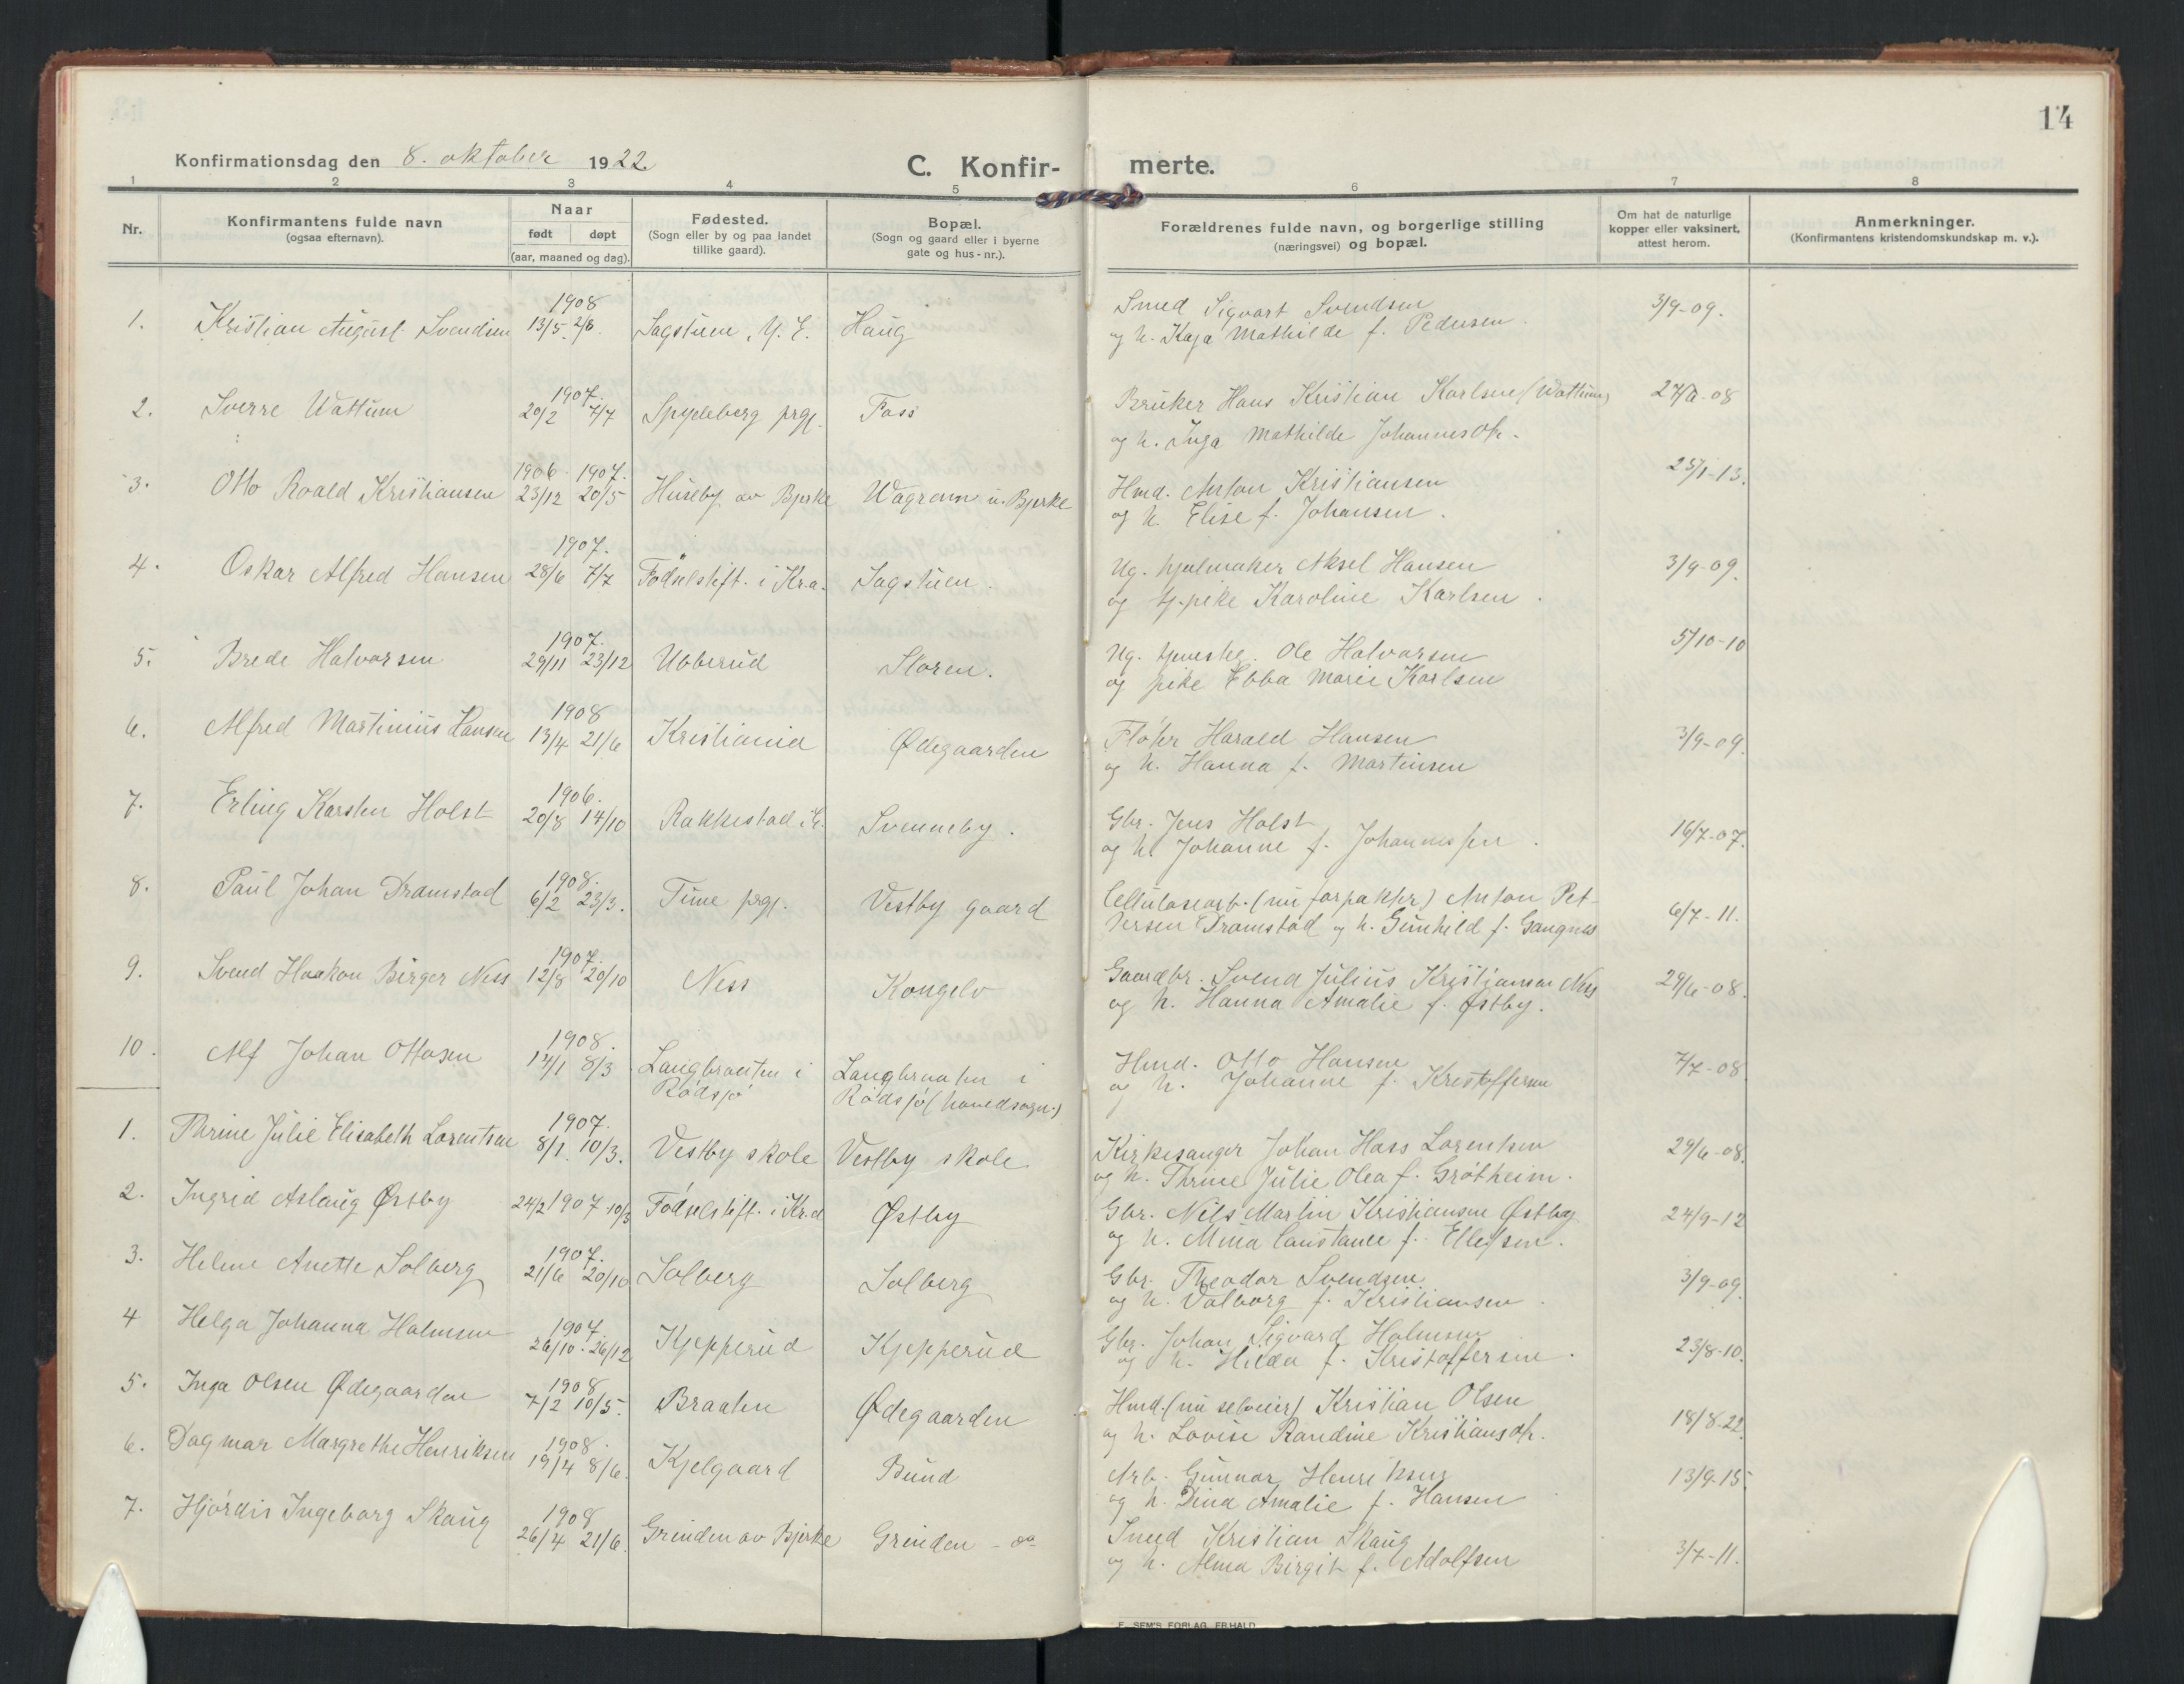 14
Konfirmationsdag den 8. oktober 1922.
C. Konfir-merte.
1 2 3 4 5 6 7 8
Nr.
Konfirmantens fulde navn
(ogsaa efternavn).
Naar
født døpt
(aar, maaned og dag).
Fødested.
(Sogn eller by og paa landet
tillike gaard).
Bopæl.
(Sogn og gaard eller i byerne
gate og hus-nr.).
Forældrenes fulde navn, og borgerlige stilling
(næringsvei) og bopæl.
Om hat de naturlige
kopper eller vaksinert,
attest herom.
Anmerkninger.
(Konfirmantens kristendomskundskap m. v.).
1908
1. Kristian August Svendsen 13/5 2/8 Sagstuen, Y. E. Haug
Smed Sigvart Svendsen
og h. Kaja Mathilde f. Pedersen. 3/9-09.
1907.
2. Sverre Wattum 20/2 7/7 Spydeberg prgj. Foss
Bruker Hans Kristian Karlsen (Wattum)
og h. Inga Mathilde Johannesdtr. -08
1906. 1907.
3. Otto Roald Kristiansen 23/12 20/5 Huseby av Bjerke Wagram u. Bjerke
Hmd. Anton Kristiansen
og h. Elise f. Johansen. 25/1-13.
1907.
4. Oskar Alfred Hansen 28/6 7/7 Fødselstift. i Kra. Sagstuen.
Ug. hjulmaker Aksel Hansen
og tj.pike Karoline Karlsen. 3/9-09.
1907.
5. Brede Halvorsen 29/11 23/12 Ubberud Storen.
Ug. Ole Halvorsen
og pike Ebba Marie Karlsen 5/10-10
1908
6. Alfred Martinius Hansen 13/4 21/6 Kristiania Ødegaarden
Fløter Harald Hansen
og h. Hanna f. Martinsen 3/9-09.
1906.
7. Erling Karsten Holst 20/8 14/10 Rakkestad Svenneby.
Gbr. Jens Holst
og h. Johanne f. Johannessen. 16/7-07.
1908.
8. Paul Johan Dramstad 6/2 23/3. Time prgj. Vestby gaard
Cellulosearb. (nu forpakter) Anton Pet-
tersen Dramstad og h. Gunhild f. Gangnes 6/7-11.
1907.
9. Svend Haakon Birger Ness 12/8 20/10 Ness Kongelv
Gaardbr. Svend Julius Kristiansen Ness
og h. Hanna Amalie f. Østby. 29/6-08.
1908.
10. Alf Johan Ottosen 14/1 8/3 Langbraaten i
Rødsjø Langbraaten i
Rødsjø (hovedsogn.)
Hmd. Otto Hansen
og h. Johanne f. Kristoffersen 7/7-08
1907.
1. Thrine Julie Elisabeth Lorentsen 8/1. 10/3. Vestby skole Vestby skole
Kirkesanger Johan Hass Lorentsen
og h. Thrine Julie Olea f. Grøtheim. 29/6-08.
2. Ingrid Aslaug Østby 24/2 1907 10/3 Fødselstift. i Kr.a Østby
Gbr. Nils Martin Kristiansen Østby
og h. Mina Constance f. Ellefsen. 24/9-12
1907.
3. Helene Anette Solberg 21/6 20/10 Solberg Solberg
Gbr. Theodor Svendsen
og h. Valborg f. Kristiansen. 3/9-09.
1907.
4 Helga Johanna Holmsen 26/10. 26/12 Kjepperud Kjepperud
Gbr. Johan Sigvard Holmsen
og h. Hilda f. Kristoffersen. 23/8-10.
1908
5. Inga Olsen Ødegaarden 7/2 10/5. Braaten Ødegaarden
Hmd. (nu selveier) Kristian Olsen
og h. Lovise Randine Kristiansdtr. 18/8-22.
1908.
6. Dagmar Margrethe Henriksen 19/4 8/6. Kjelgaard Bund
Arb. Gunnar Henriksen
og h. Dina Amalie f. Hansen 13/9-15.
1908
7. Hjørdis Ingeborg Skaug 26/4 21/6. Grinden av Bjerke Grinden - do
Smed Kristian Skaug
og h. Alma Birgit f. Adolfsen 3/7-11.
E. SEM'S FORLAG, FR.HALD